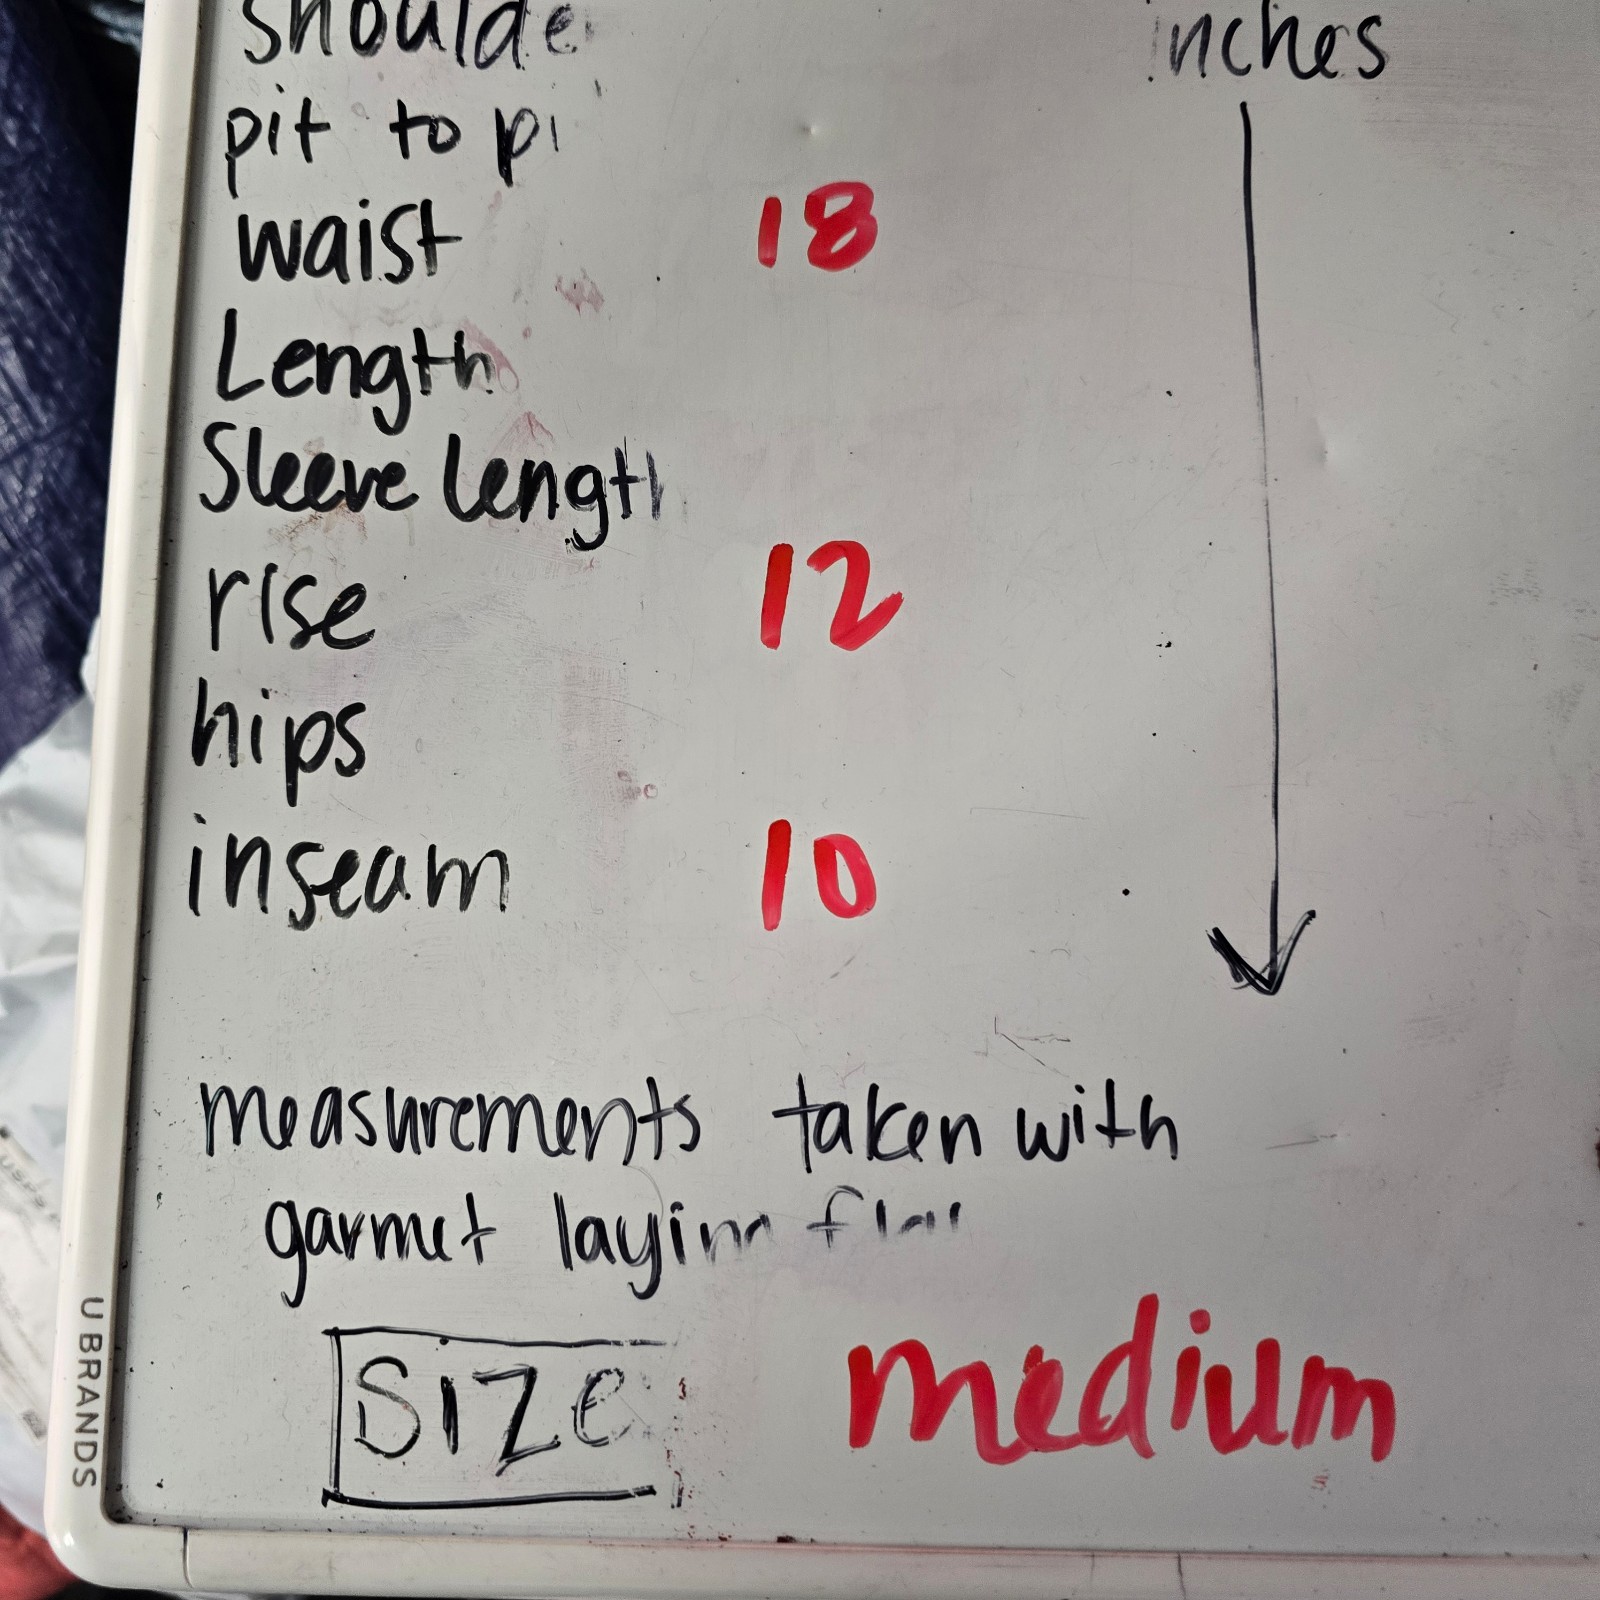 shoulde inches
pit to pi
waist 18
Length
Sleeve length
rise 12
hips
inseam 10
measurements taken with
garmet laying flat
SIZE medium
U BRANDS